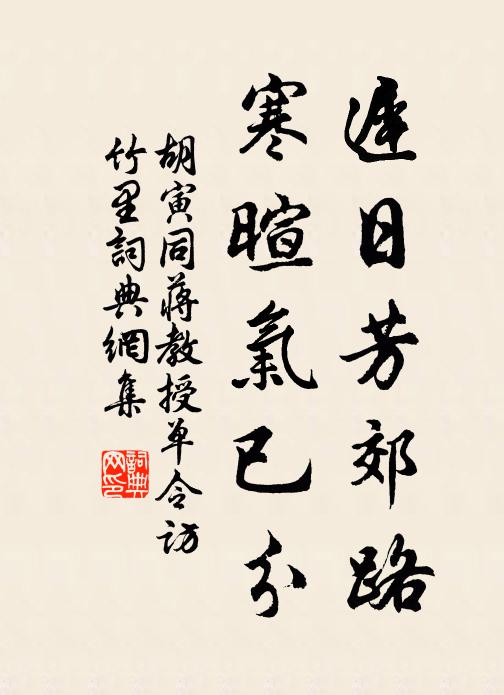 遲日芳郊路
寒暄氣已分
胡寅同蔣教授单令訪
竹里詞典網集
詞典
网印